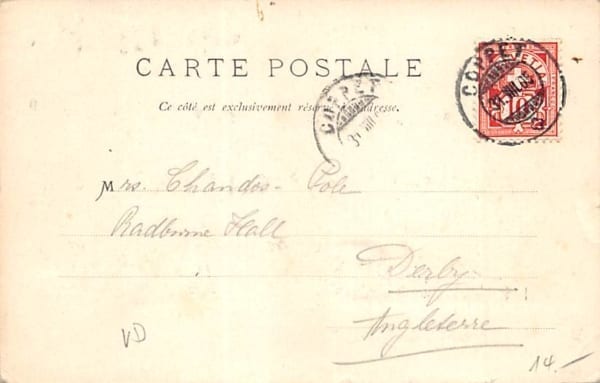 CARTE POSTALE
Ce côté est exclusivement réservé à l'adresse.
COPPET
COPPET
Mrs. Chandos-Pole
Radburne Hall
Derby
Angleterre
VD
14.-